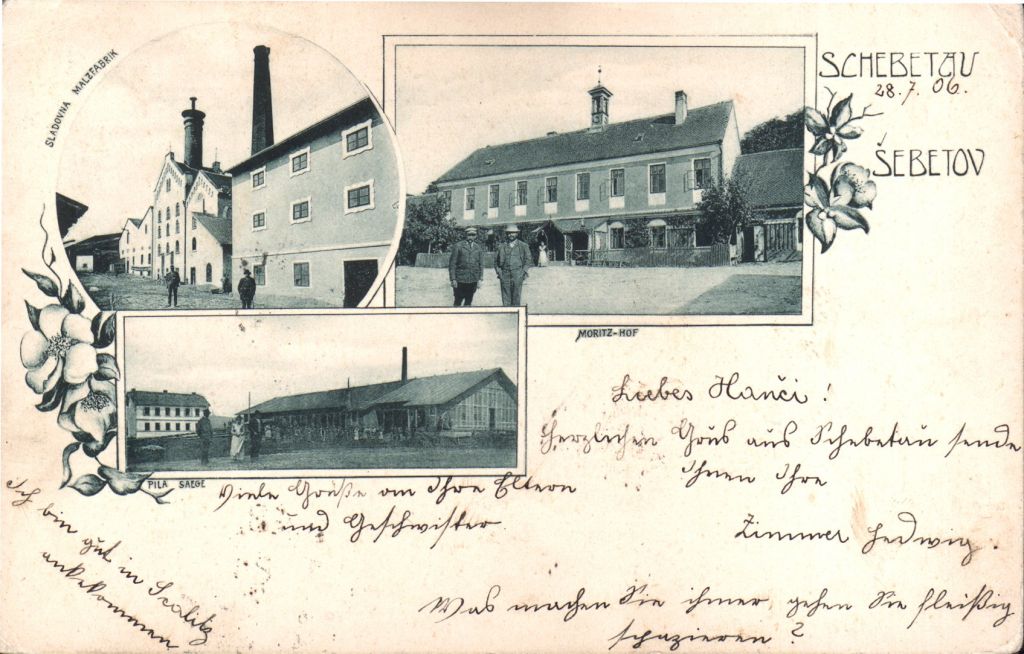 SLADOVNA MALZFABRIK
SCHEBETAU
28.7.06.
ŠEBETOV
MORITZ-HOF
PILA SAEGE
Liebes Hanči!
Herzlichen Grus aus Schebetau sende
Ihnen Ihre
Zimmer Hedwig.
Viele Grüße an Ihre Eltern
und Geschwister
Ich bin gut in Scalitz
ankekommen
Was machen Sie ihmer, gehen Sie fleißig
spazieren?